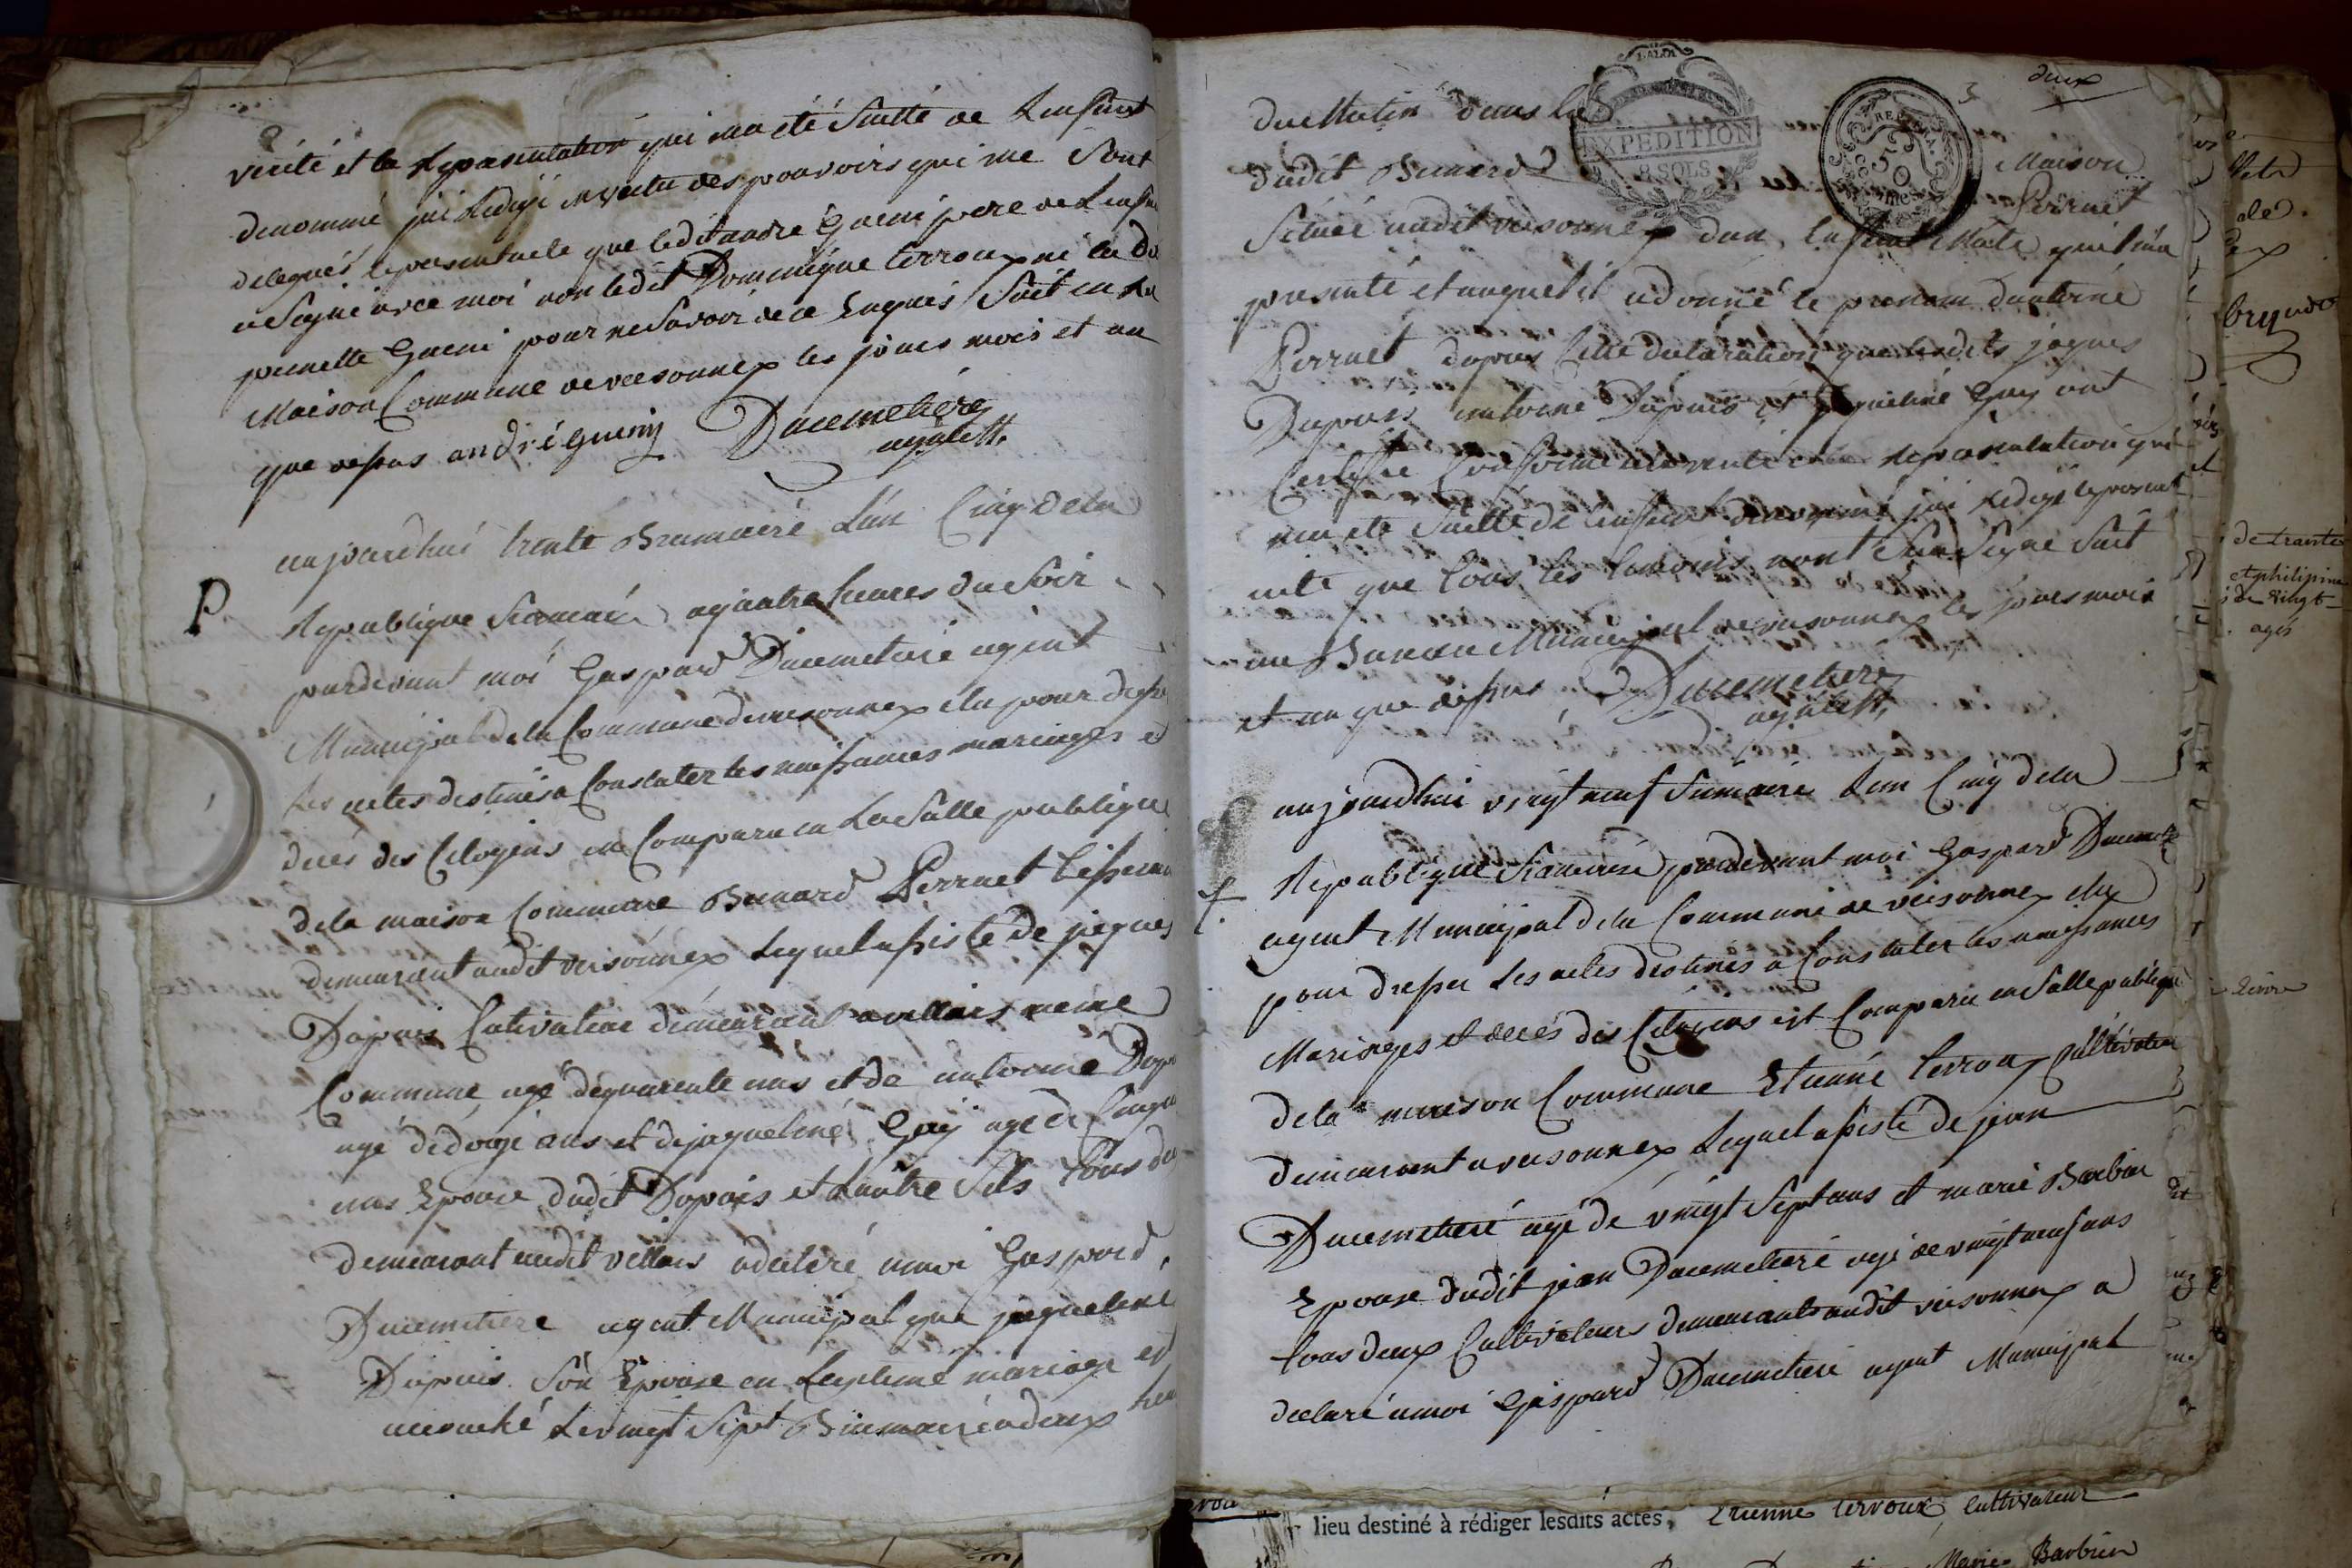 verité et la representation qui ma eté faitte de Lenfant
denommé jai Redigé en vertu des pouvoirs qui me sont
delegués le present acte que ledit andré Guerin pere de Lenfan
a signé avec moi non ledit Dominique terroux ni la ditte
pernette Guerin pour ne savoir de ce Enquis fait en La
Maison Commune de versonnex les jours mois et an
que dessus andré Guerin Ducimetiere
agent
aujourdhui trente Brumaire Lan Cinq de la
P
Republique francaise a quatre heures du soir
pardevant moi Gaspard Ducimetiere agent
Municipal de la Commune de versonnex elu pour dresser
Les actes destinés a Constater les naissances mariages et
decés des Citoyens est Comparu en La salle publique
de la maison Commune Bernard Perruet tisseran
demeurant audit versonnex Lequel assisté de jaques
Dupuis Cultivateur demeurant a villars meme
Commune agé de quarente ans et de antoine Dupuis
agé de douze ans et de jaqueline Guy agé de Cinqu
ans Epouse dudit Dupuis et Lautre fils tous deux
demeurant audit villars a declaré a moi Gaspard
Ducimetiere agent Municipal que jaqueline
Dupuis son Epouse en Legitime mariage est
accouché Le vingt sept Brumaire a deux heu
deux
3
LA LOI
EXPEDITION
8 SOLS
REP. FRA.
50
du Matin dans la
dudit Bernard Maison
Perruet
située audit versonnex dun Enfant Male quil ma
presenté et auquel il a donné le prenom dantoine
Perruet dapres cette declaration que lesdits jaques
Dupuis antoine Dupuis et jaqueline Guy ont
Certifié Conforme a la verité et la representation qui
ma eté faitte de Lenfant denommé jai redigé le present
acte que tous les temoins nont signé fait
au Bureau Municipal de versonnex les jours mois
et an que dessus Ducimetiere
agent
aujourdhui vingt neuf frimaire Lan Cinq de la
Republique francaise pardevant moi Gaspard Ducimetie
agent Municipal de la Commune de versonnex elu
pour dresser Les actes destinés a Constater les naissances
Mariages et decés des Citoyens est Comparu en salle publique
de la maison Commune Etienne terroux Cultivateur
demeurant a versonnex Lequel assisté de jean
Ducimetiere agé de vingt sept ans et marie Barbier
Epouse dudit jean Ducimetiere agé de vingt neuf ans
tous deux Cultivateurs demeurants audit versonnex a
declaré a moi Gaspard Ducimetiere agent Municipal
de trante
et philipine
de vingt
agés
lieu destiné à rédiger lesdits actes, Etienne terroux Cultivateur
Marie Barbier